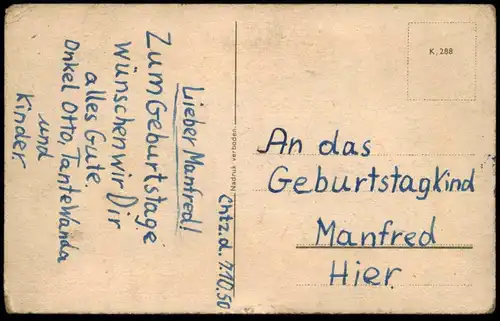 Lieber Manfred!
Zum Geburtstage
wünschen wir Dir
alles Gute.
Onkel Otto, Tante Wanda
und
Kinder.
Cntz. d. 7.10.50
Nachdruck verboten
K, 288
An das
Geburtstagkind
Manfred
Hier.